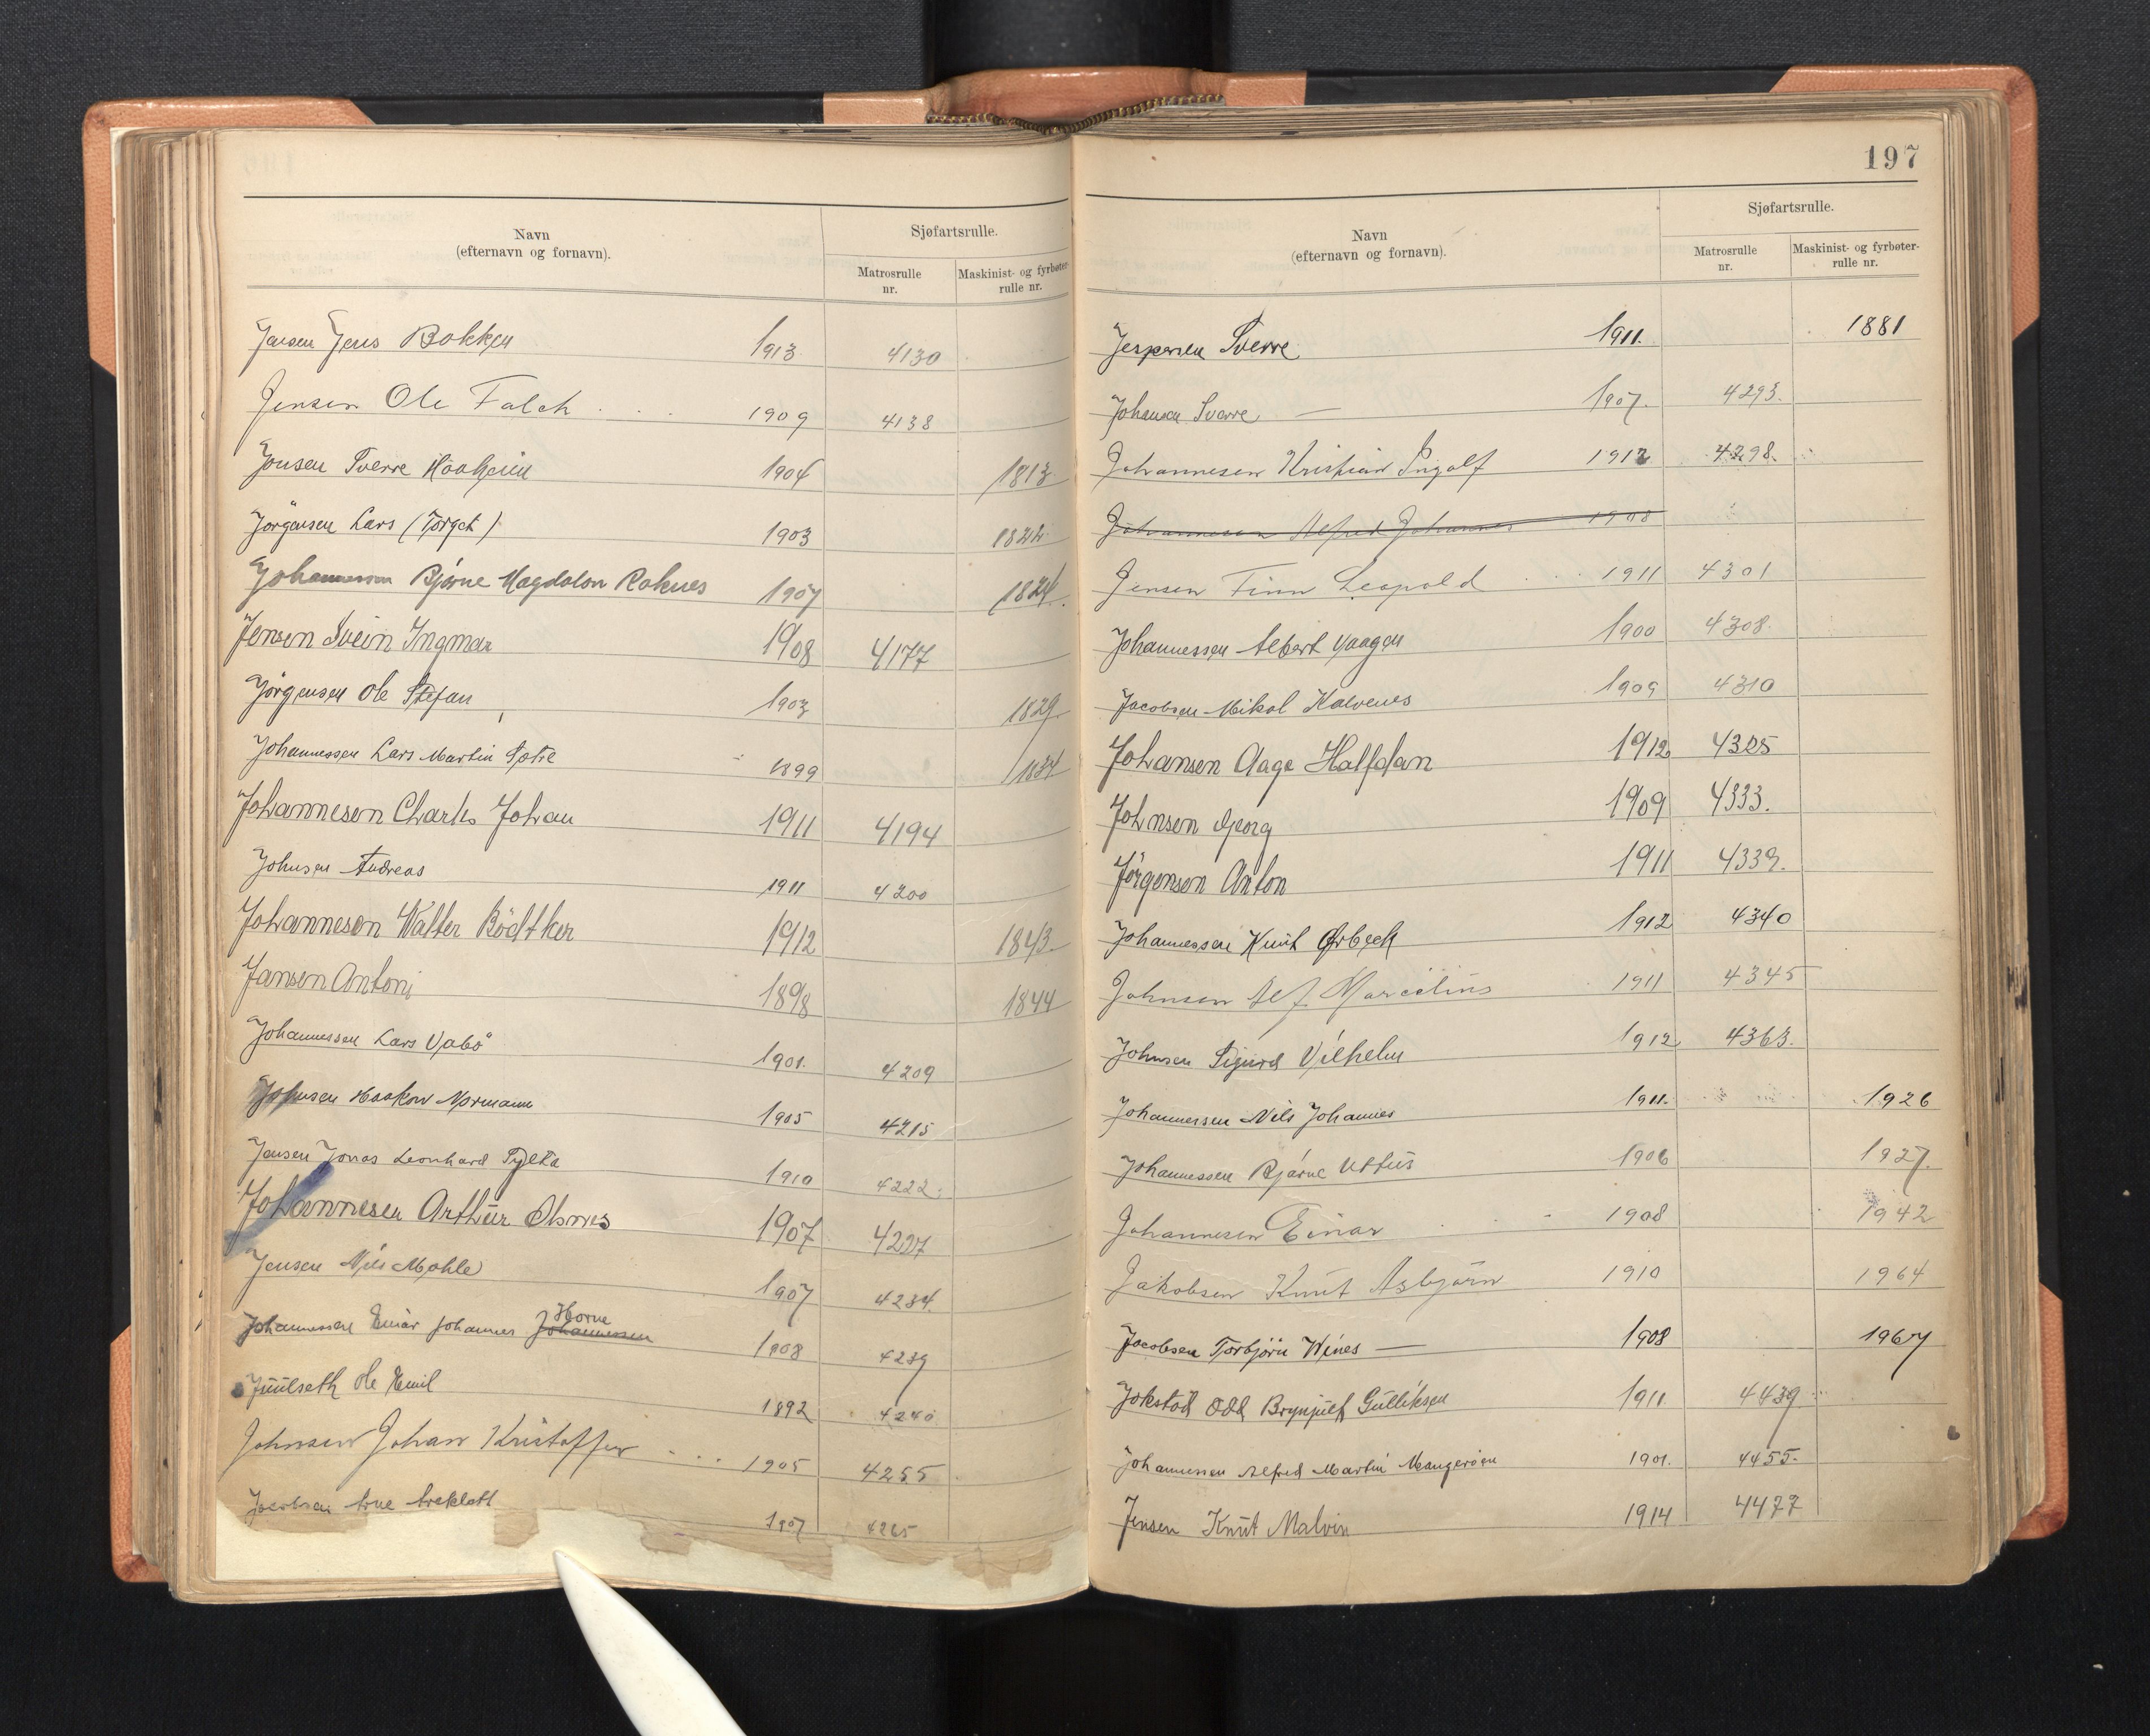 Navn
(efternavn og fornavn).
Sjøfartsrulle.
Matrosrulle
nr.
Maskinist- og fyrbøter-
rulle nr.
Jensen Jens Bakken 1913 4130
Jensen Ole Falch 1909 4138
Jensen Sverre Haaheim 1904 1813
Jørgensen Lars (Torget) 1903 1822
Johannessen Bjørne Magdalon Roknes 1907 1824
Jensen Svein Ingmar 1908 4177
Jörgensen Ole Stefan 1903 1829
Johannessen Lars Martin 1899 1834
Johannesen Charles Johan 1911 4194
Johnsen Andreas 1911 4200
Johannesen Walter Bödtker 1912 1843
Jansen Antoni 1898 1844
Johannessen Lars Vabø 1901. 4209
Johnsen Haakon Normann 1905 4215
Jensen Jonas Leonhard 1910 4222.
Johannesen Arthur 1907 4227
Jensen Nils Møhle 1907 4234.
Horne
Johannessen Einar Johannes Johannessen 1908 4239
Juulseth Ole Emil 1892 4240
Johnsen Johan Kristoffer 1905 4255
Jacobsen 1907 4265
197
Navn
(efternavn og fornavn).
Sjøfartsrulle.
Matrosrulle
nr.
Maskinist- og fyrbøter-
rulle nr.
Jespersen Sverre 1911. 1881
Johansen Sverre — 1907. 4293.
Johannesen Kristian Ingolf 1912 4298.
Johannesen Alfred Johannes 1908
Jensen Finn Leopold 1911 4301
Johannessen Albert Vaagen 1900 4308.
Jacobsen Mikal Halvenes 1909 4310
Johansen Aage Halfdan 1912 4325
Johnsen Georg 1909 4333.
Jörgensen Anton 1911 4339.
Johannessen Knut Ørbeck 1912 4340
Johnsen Alf Marcelius 1911 4345
Johnsen Sigurd Vilhelm 1912 4363.
Johannessen Nils Johannes 1911. 1926
Johannessen Bjarne 1906 1927.
Johannesen Einar 1908 1942
Jakobsen Knut Asbjørn 1910 1964
Jacobsen Torbjörn Wines — 1908 1967
Jokstad Odd Brynjulf Gulliksen 1911 4439
Johannessen Alfred Martin Mangerøen 1901. 4455.
Jensen Knut Malvin 1914 4477